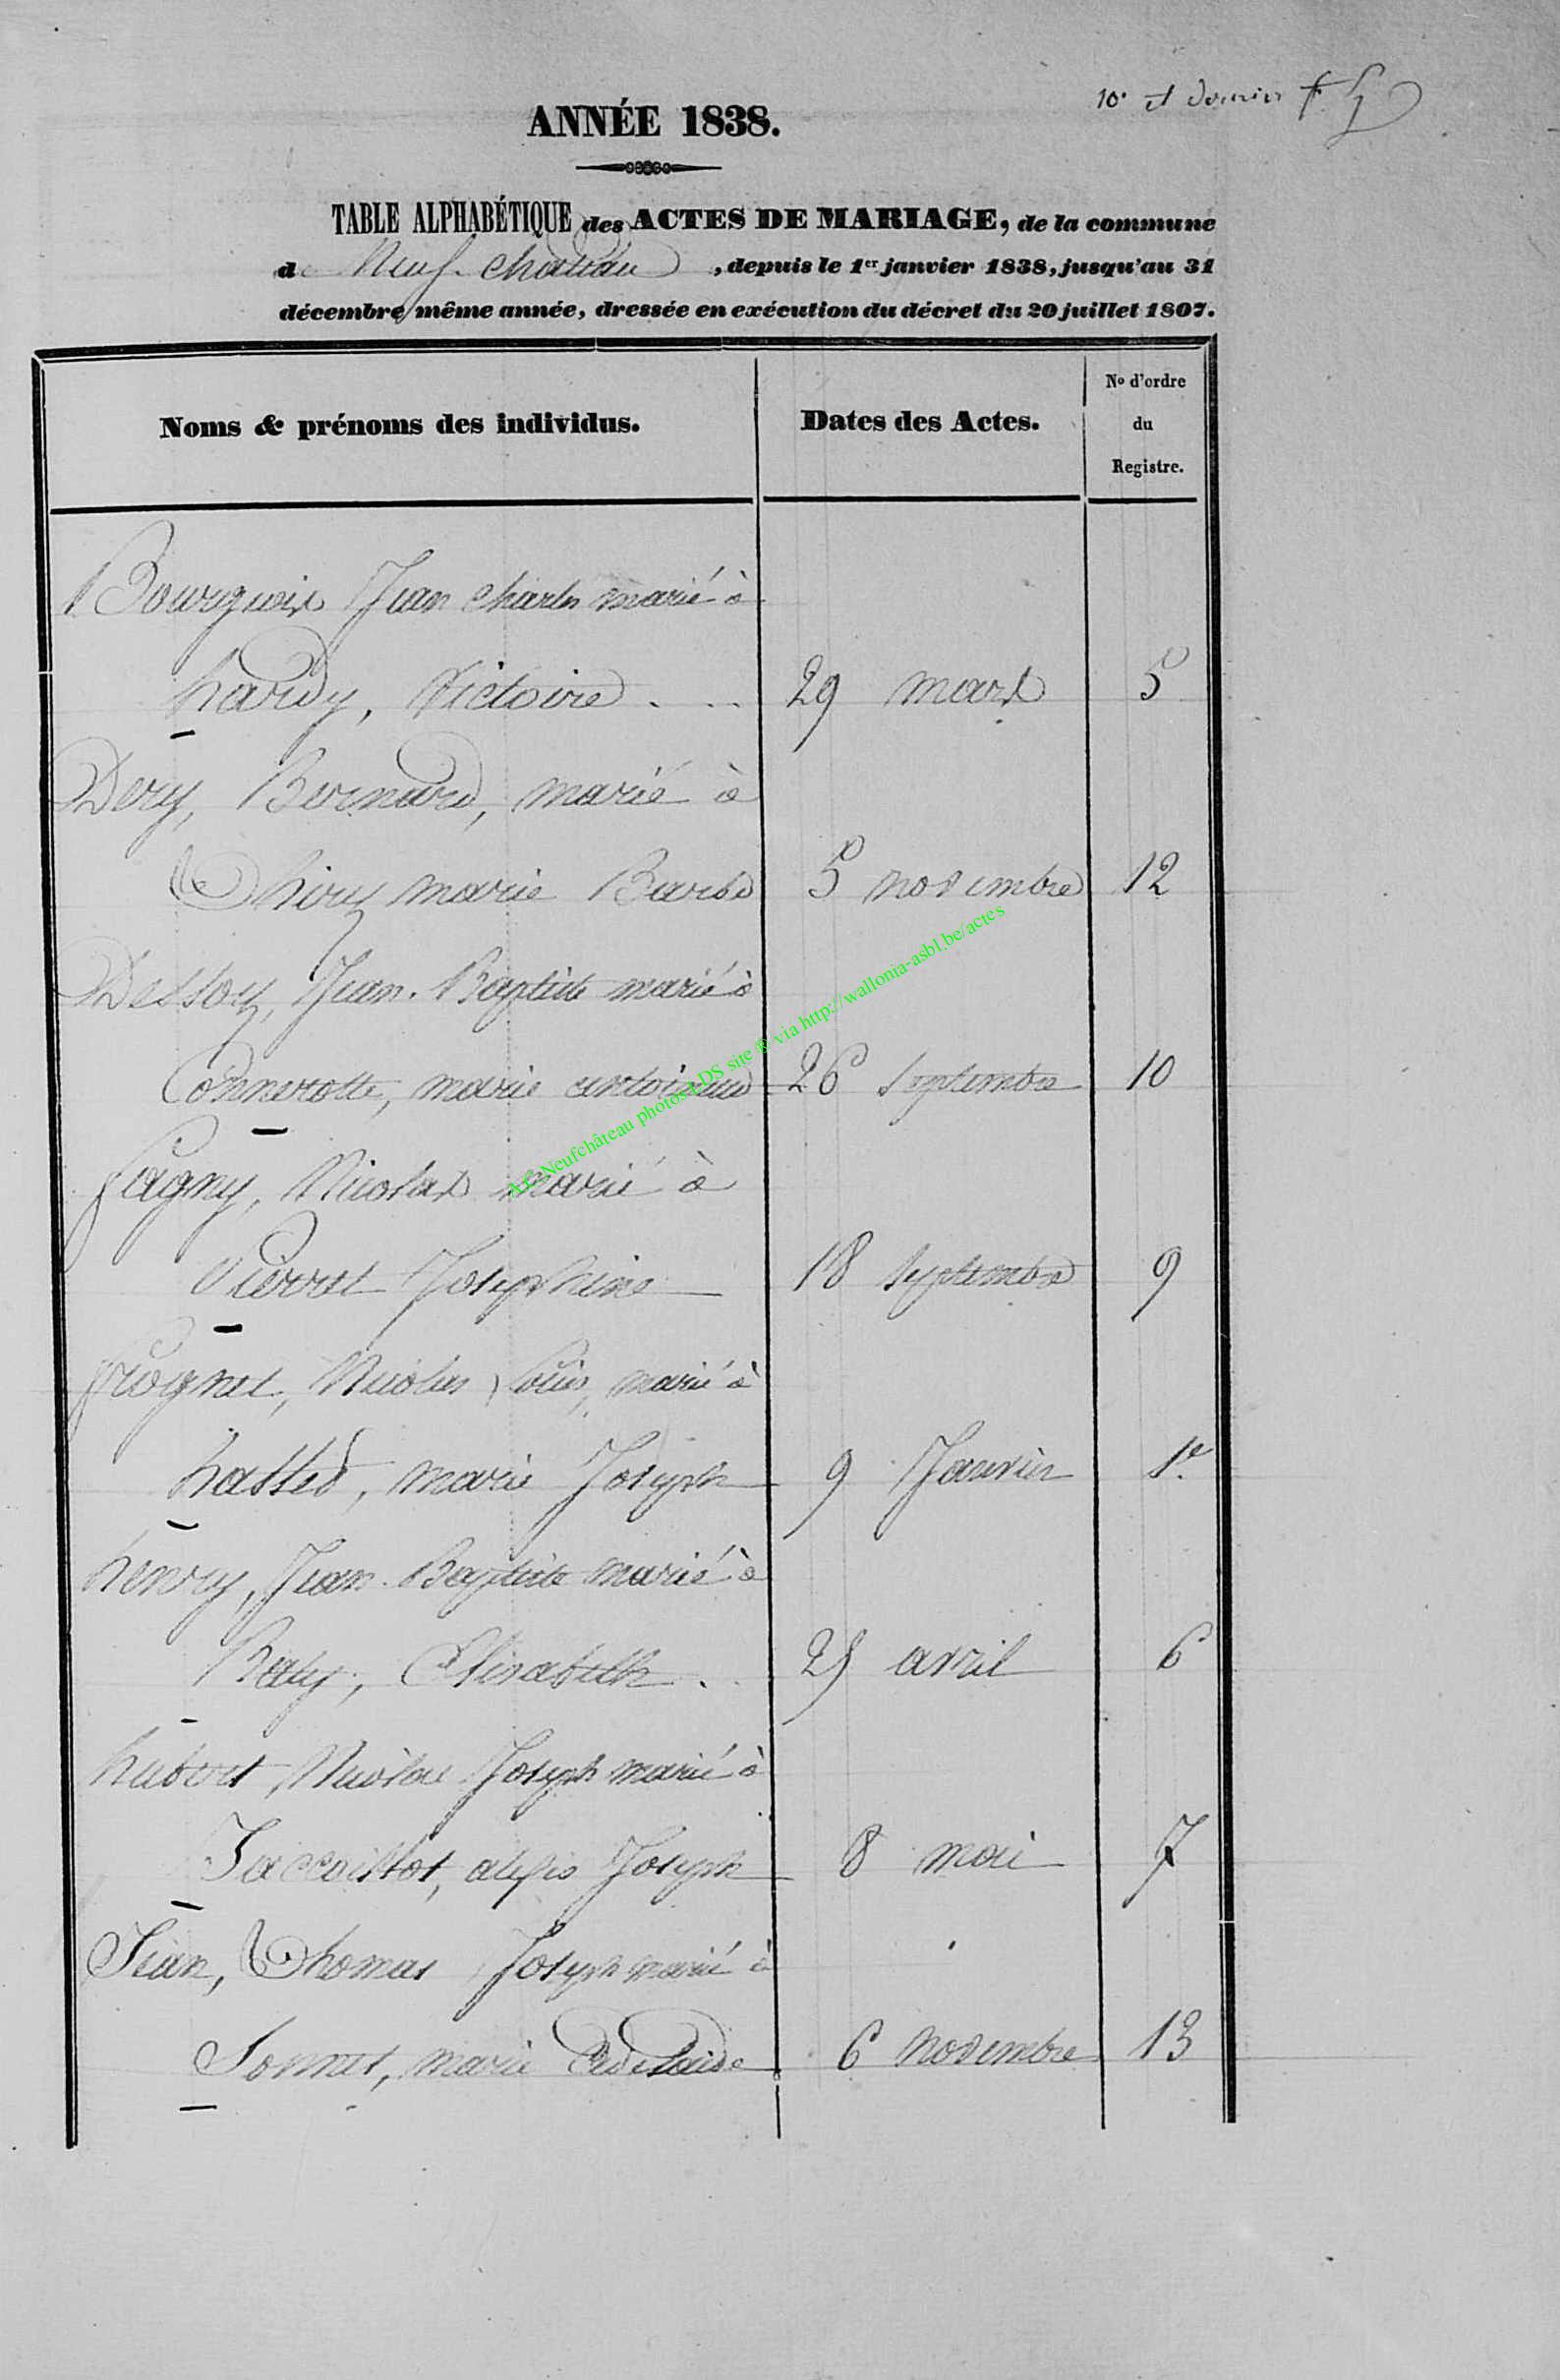 10e et dernier f.
ANNÉE 1838.
TABLE ALPHABÉTIQUE des ACTES DE MARIAGE, de la commune
de Neufchateau, depuis le 1er janvier 1838, jusqu'au 31
décembre même année, dressée en exécution du décret du 20 juillet 1807.
Noms & prénoms des individus. Dates des Actes. No d'ordre du Registre.
Bourguix Jean Charles marié à
hardy, Victoire 29 mars 5
Dery, Bernard, marié à
Thiry marie Barbe 5 novembre 12
Dessoy, Jean-Baptiste marié à
Connerotte, marie antoinette 26 Septembre 10
fagny, Nicolas marié à
Pierret Josephine 18 Septembre 9
frognet, Nicolas Louis, marié à
hasted, marie Joseph 9 Janvier 1e
henry, Jean-Baptiste marié à
Raty, Elisabeth 25 avril 6
hubert, Nicolas Joseph marié à
alexis Joseph 8 mai 7
Jean, Thomas Joseph marié à
Sonnet, marie Adelaide 6 novembre 13
AE Neufchâteau photos LDS site ® via http://wallonia-asbl.be/actes